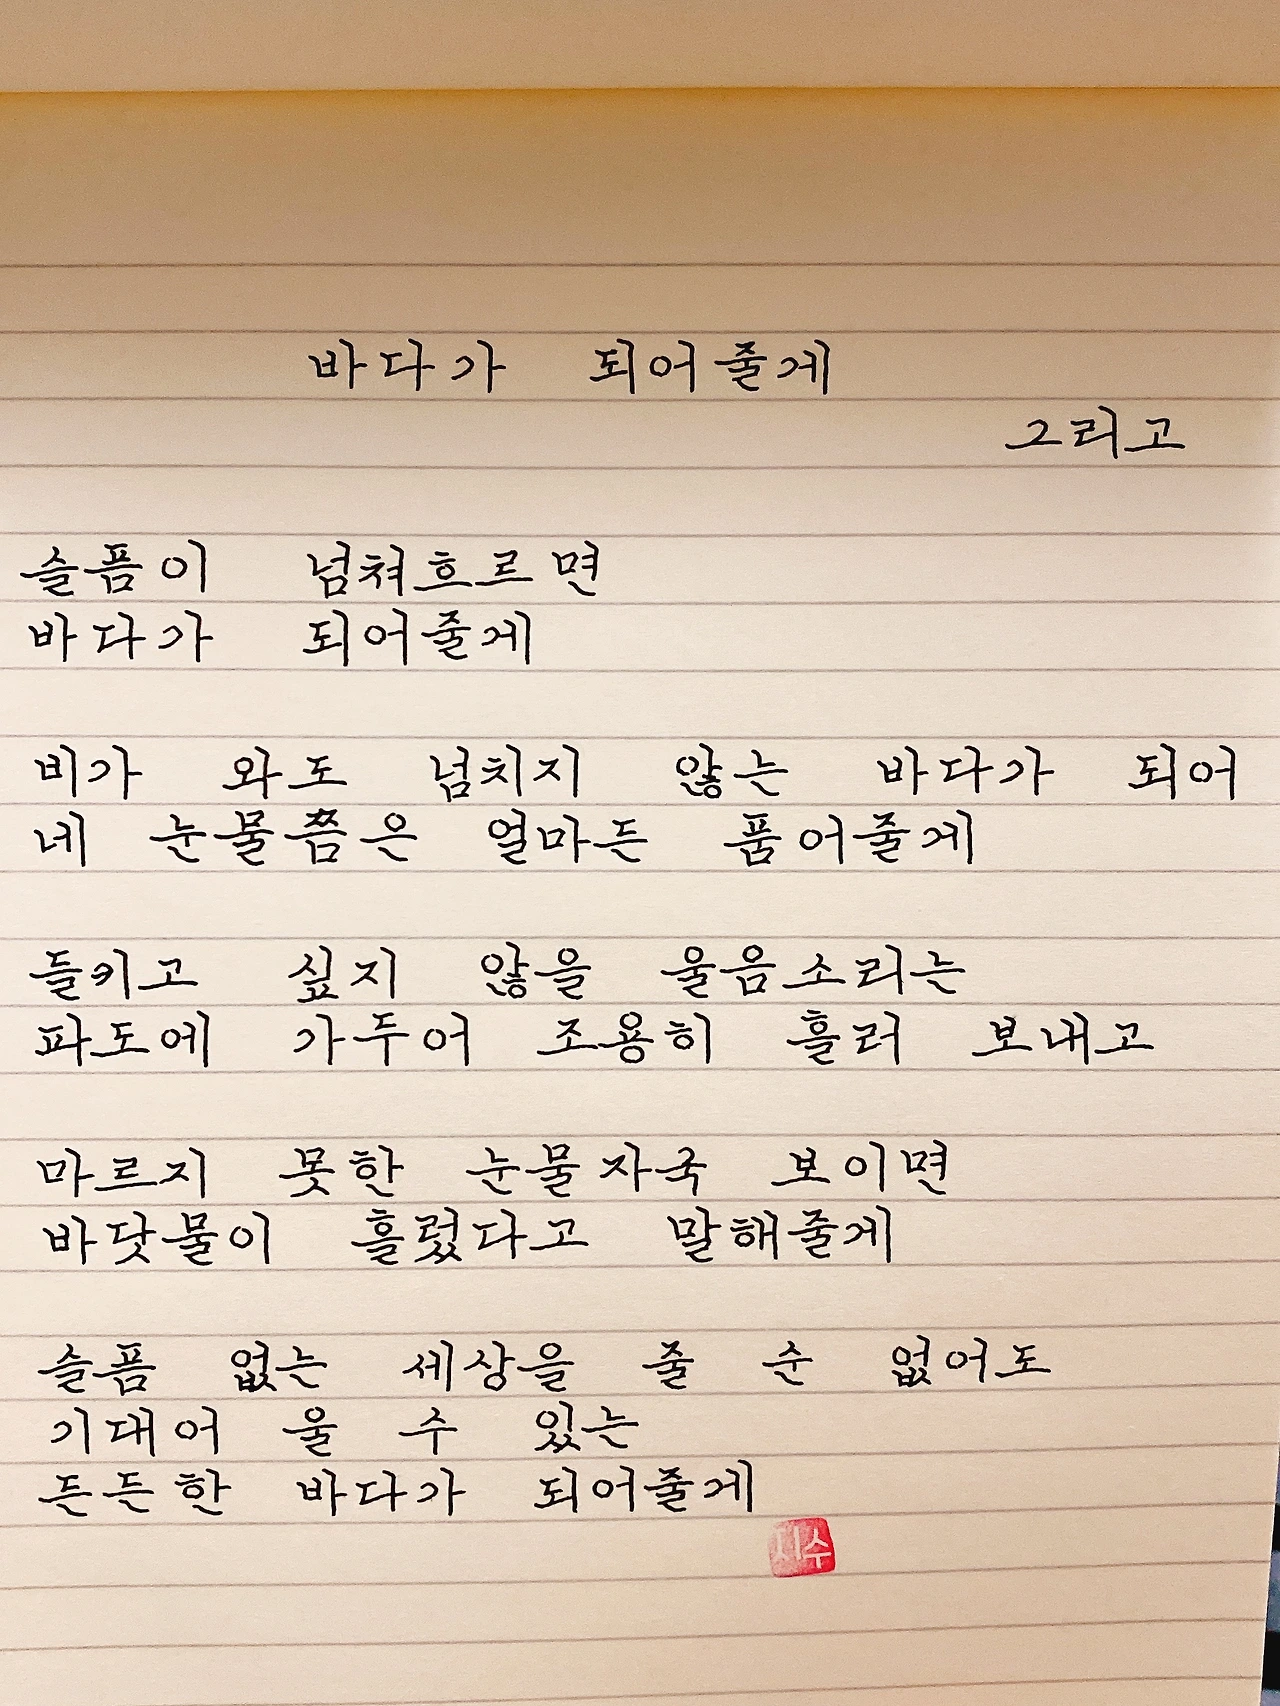 바다가 되어줄게
그리고
슬픔이 넘쳐흐르면
바다가 되어줄게
비가 와도 넘치지 않는 바다가 되어
네 눈물쯤은 얼마든 품어줄게
들키고 싶지 않을 울음소리는
파도에 가두어 조용히 흘려 보내고
마르지 못한 눈물자국 보이면
바닷물이 흘렀다고 말해줄게
슬픔 없는 세상을 줄 순 없어도
기대어 울 수 있는
든든한 바다가 되어줄게
지수